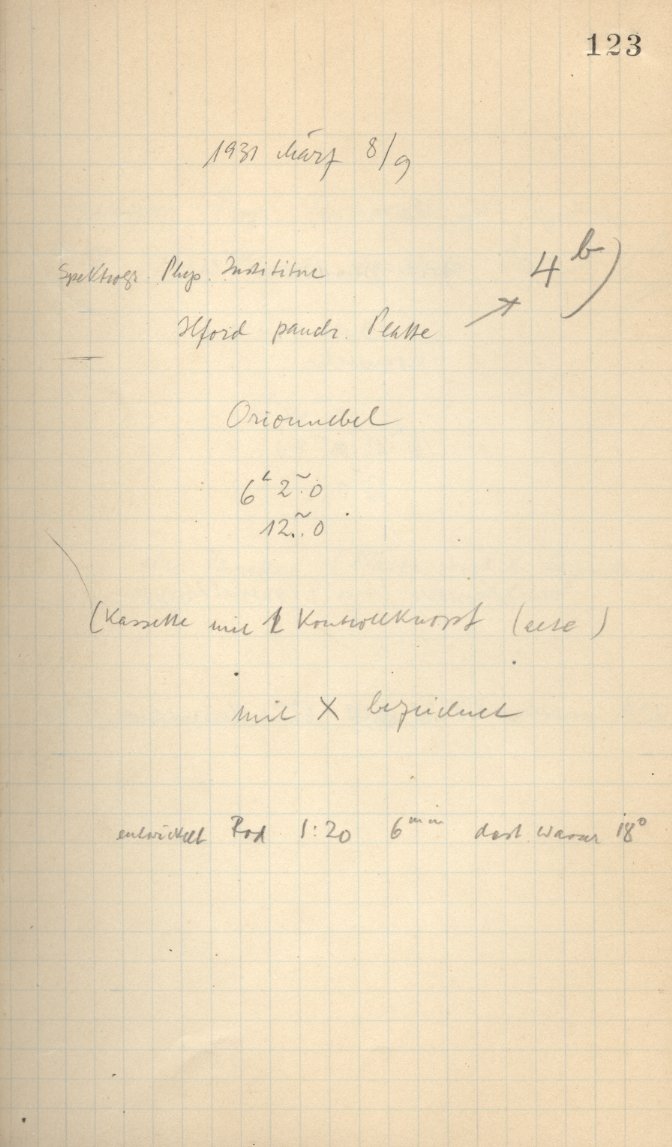 123
1931 März 8/9
4 b)
Spektrogr. Phys. Institutes
Ilford panchr. Platte
Orionnebel
6h 2m.0
12m.0
(Kassette mit 1 Kontrollknopf (alte)
mit X bezeichnet
entwickelt Rod 1:20 6min dest. Wasser 18°